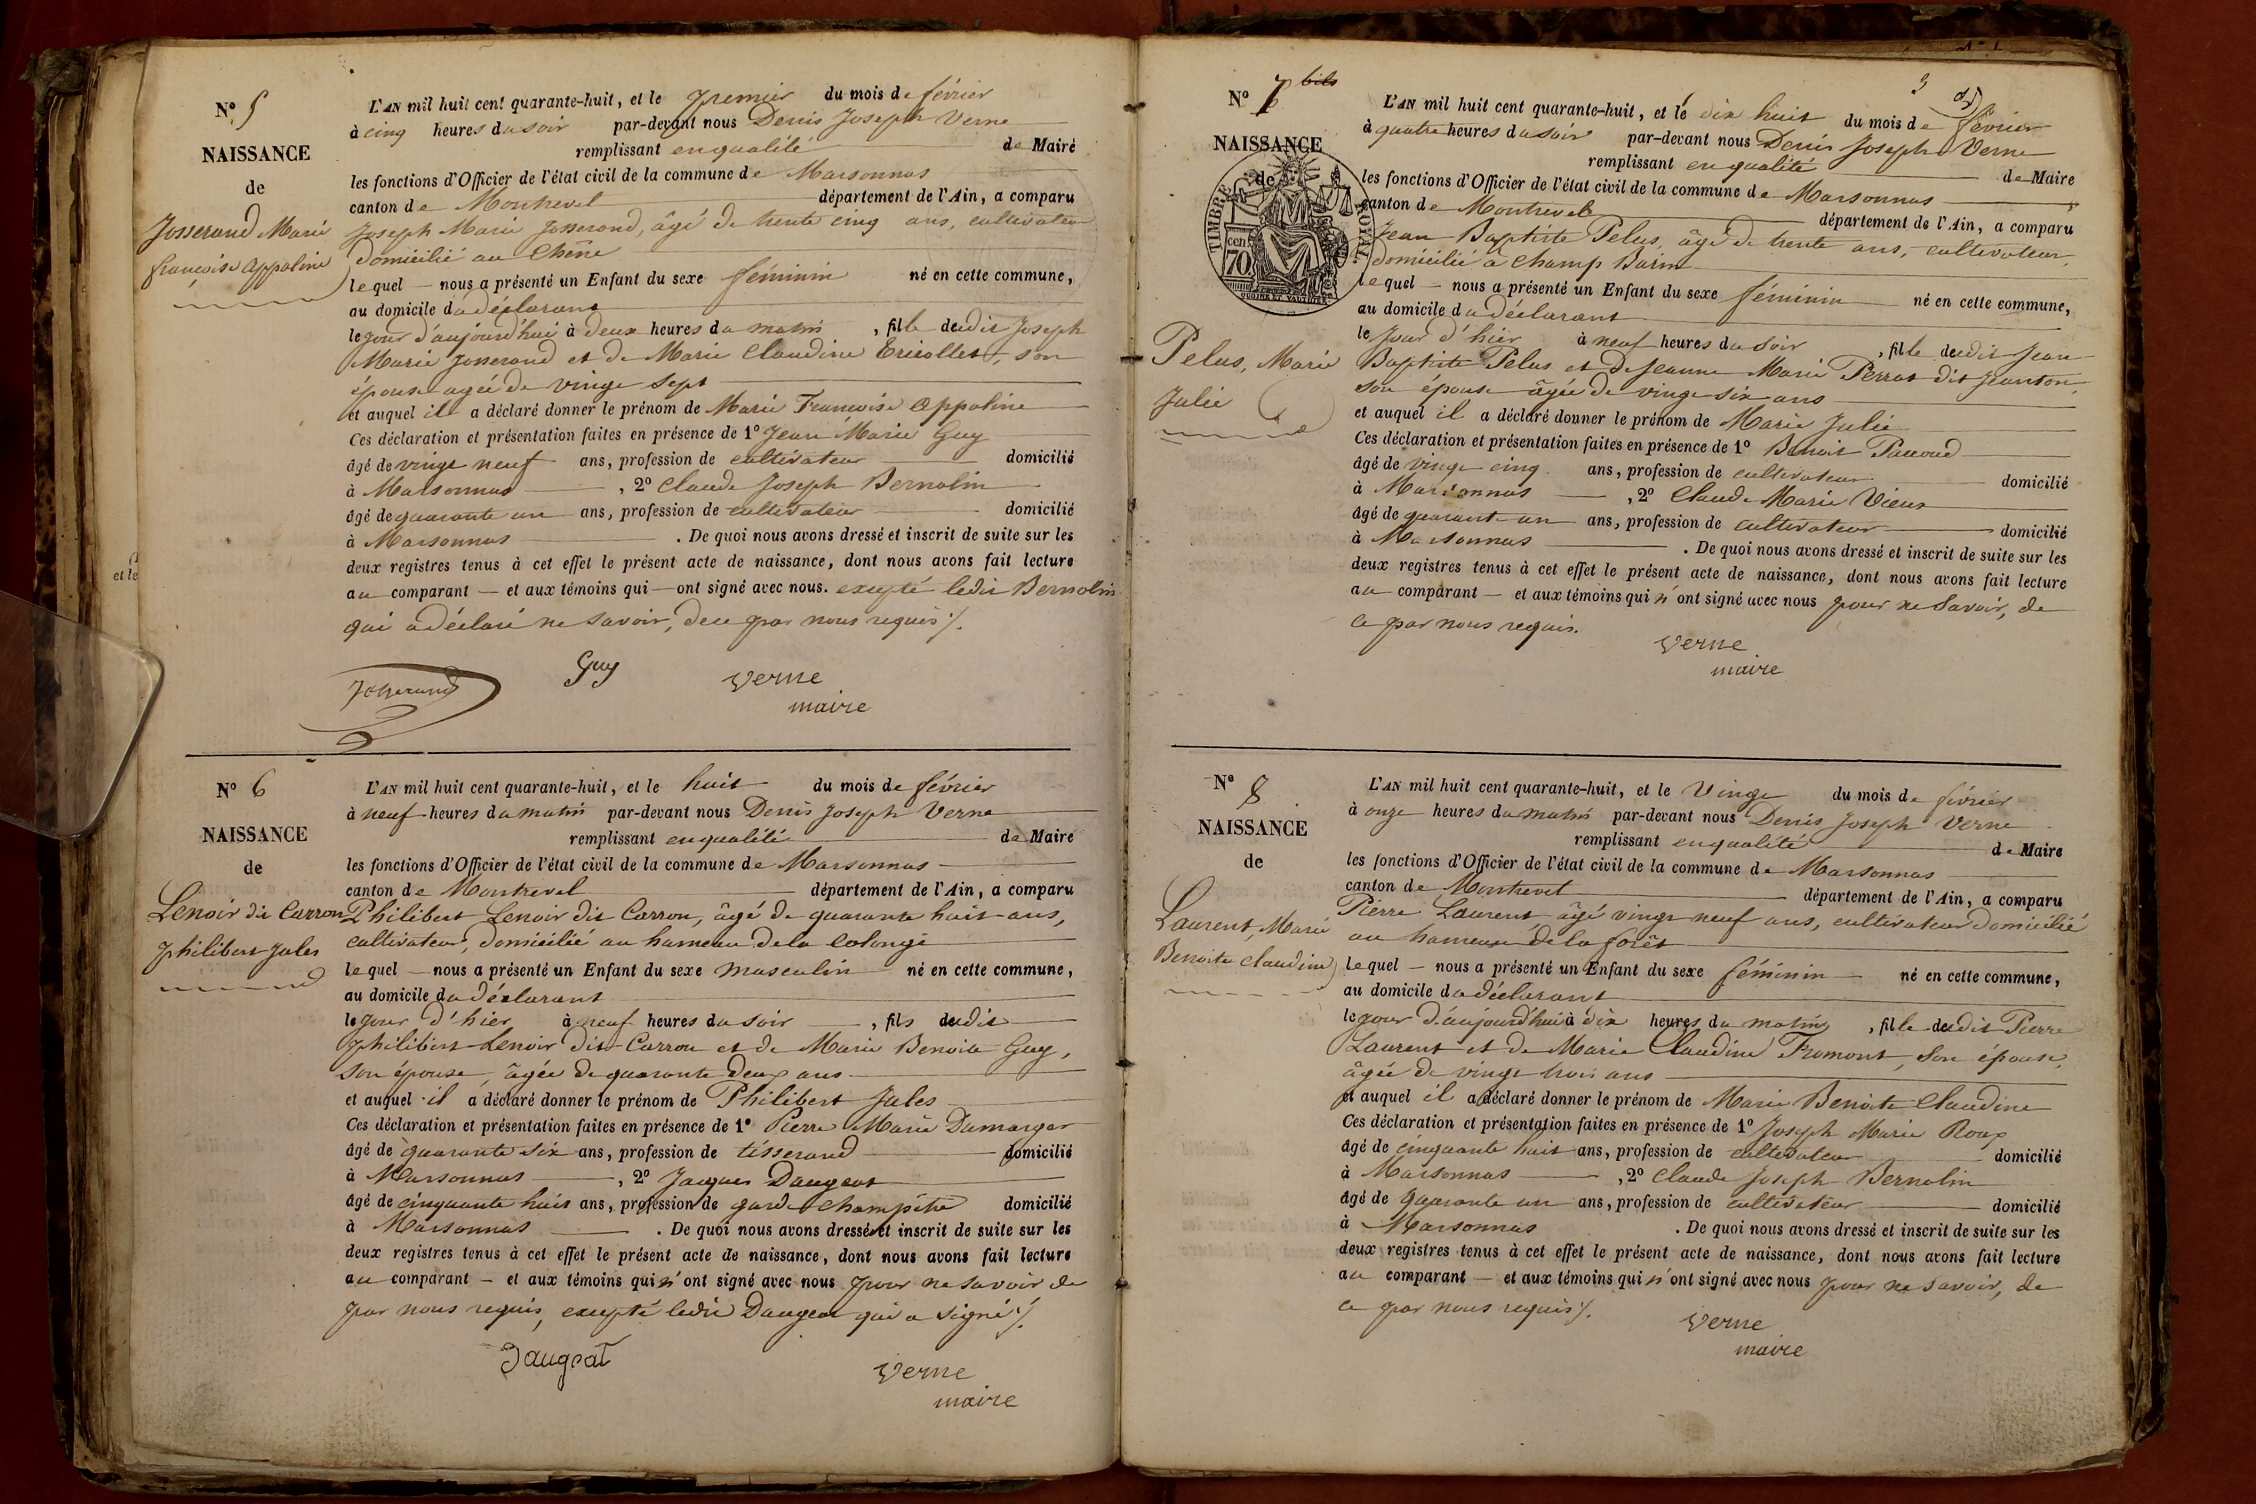 N° 5
NAISSANCE
de
Josserand Marie
françoise appoline
L'AN mil huit cent quarante-huit, et le premier du mois de février
à cinq heures du soir par-devant nous Denis Joseph Verne
remplissant en qualité de Maire
les fonctions d'Officier de l'état civil de la commune de Marsonnas
canton de Montrevel département de l'Ain, a comparu
Joseph Marie Josserand, âgé de trente cinq ans, cultivateur
domicilié au Chêne
lequel — nous a présenté un Enfant du sexe féminin né en cette commune,
au domicile du déclarant
le jour d'aujourd'hui à deux heures du matin, fille dudit Joseph
Marie Josserand et de Marie Claudine Ericollet, son
épouse agée de vingt sept
et auquel il a déclaré donner le prénom de Marie Françoise Appoline
Ces déclaration et présentation faites en présence de 1° Jean Marie Guy
âgé de vingt neuf ans, profession de cultivateur domicilié
à Marsonnas, 2° Claude Joseph Bernolin
âgé de quarante un ans, profession de cultivateur domicilié
à Marsonnas. De quoi nous avons dressé et inscrit de suite sur les
deux registres tenus à cet effet le présent acte de naissance, dont nous avons fait lecture
au comparant — et aux témoins qui — ont signé avec nous. excepté ledit Bernolin
qui a déclaré ne savoir, de ce par nous requis ./.
Josserand
Guy
Verne
maire
N° 6
NAISSANCE
de
Lenoir dit Carron
philibert Jules
L'AN mil huit cent quarante-huit, et le huit du mois de février
à neuf heures du matin par-devant nous Denis Joseph Verne
remplissant en qualité de Maire
les fonctions d'Officier de l'état civil de la commune de Marsonnas
canton de Montrevel département de l'Ain, a comparu
Philibert Lenoir dit Carron, âgé de quarante huit ans,
cultivateur, domicilié au hameau de la Colonge
lequel — nous a présenté un Enfant du sexe masculin né en cette commune,
au domicile du déclarant
le jour d'hier à neuf heures du soir, fils dudit
philibert Lenoir dit Carron et de Marie Benoite Guy,
son épouse, âgée de quarante deux ans
et auquel il a déclaré donner le prénom de Philibert Jules
Ces déclaration et présentation faites en présence de 1° Pierre Marie Damargar
âgé de quarante six ans, profession de tisserand domicilié
à Marsonnas, 2° Jacques Daugeat
âgé de cinquante huit ans, profession de garde champêtre domicilié
à Marsonnas. De quoi nous avons dressé et inscrit de suite sur les
deux registres tenus à cet effet le présent acte de naissance, dont nous avons fait lecture
au comparant — et aux témoins qui n'ont signé avec nous pour ne savoir de
par nous requis, excepté ledit Daugeat qui a signé ./.
Daugeat
Verne
maire
3
N° 7 bis
NAISSANCE
de
TIMBRE ROYAL
cent 70
Pelus, Marie
Julie
L'AN mil huit cent quarante-huit, et le dix huit du mois de février
à quatre heures du soir par-devant nous Denis Joseph Verne
remplissant en qualité de Maire
les fonctions d'Officier de l'état civil de la commune de Marsonnas
canton de Montrevel département de l'Ain, a comparu
Jean Baptiste Pelus, âgé de trente ans, cultivateur,
domicilié à Champ Burin
lequel — nous a présenté un Enfant du sexe féminin né en cette commune,
au domicile du déclarant
le jour d'hier à neuf heures du soir, fille dudit Jean
Baptiste Pelus et de Jeanne Marie Perrat dit Jeanton,
son épouse âgée de vingt six ans
et auquel il a déclaré donner le prénom de Marie Julie
Ces déclaration et présentation faites en présence de 1° Benoit Pacoud
âgé de vingt cinq ans, profession de cultivateur domicilié
à Marsonnas, 2° Claude Marie Vieux
âgé de quarant un ans, profession de cultivateur domicilié
à Marsonnas. De quoi nous avons dressé et inscrit de suite sur les
deux registres tenus à cet effet le présent acte de naissance, dont nous avons fait lecture
au comparant — et aux témoins qui n'ont signé avec nous pour ne savoir, de
ce par nous requis.
Verne
maire
N° 8
NAISSANCE
de
Laurent, Marie
Benoite Claudine
L'AN mil huit cent quarante-huit, et le Vingt du mois de février
à onze heures du matin par-devant nous Denis Joseph Verne
remplissant en qualité de Maire
les fonctions d'Officier de l'état civil de la commune de Marsonnas
canton de Montrevel département de l'Ain, a comparu
Pierre Laurent, âgé vingt neuf ans, cultivateur domicilié
au hameau de la forêt
lequel — nous a présenté un Enfant du sexe féminin né en cette commune,
au domicile du déclarant
le jour d'aujourd'hui à dix heures du matin, fille dudit Pierre
Laurent et de Marie Claudine Fromont, son épouse,
âgée de vingt trois ans
et auquel il a déclaré donner le prénom de Marie Benoite Claudine
Ces déclaration et présentation faites en présence de 1° Joseph Marie Roux
âgé de cinquante huit ans, profession de cultivateur domicilié
à Marsonnas, 2° Claude Joseph Bernolin
âgé de quarante un ans, profession de cultivateur domicilié
à Marsonnas. De quoi nous avons dressé et inscrit de suite sur les
deux registres tenus à cet effet le présent acte de naissance, dont nous avons fait lecture
au comparant — et aux témoins qui n'ont signé avec nous pour ne savoir, de
ce par nous requis ./.
Verne
maire